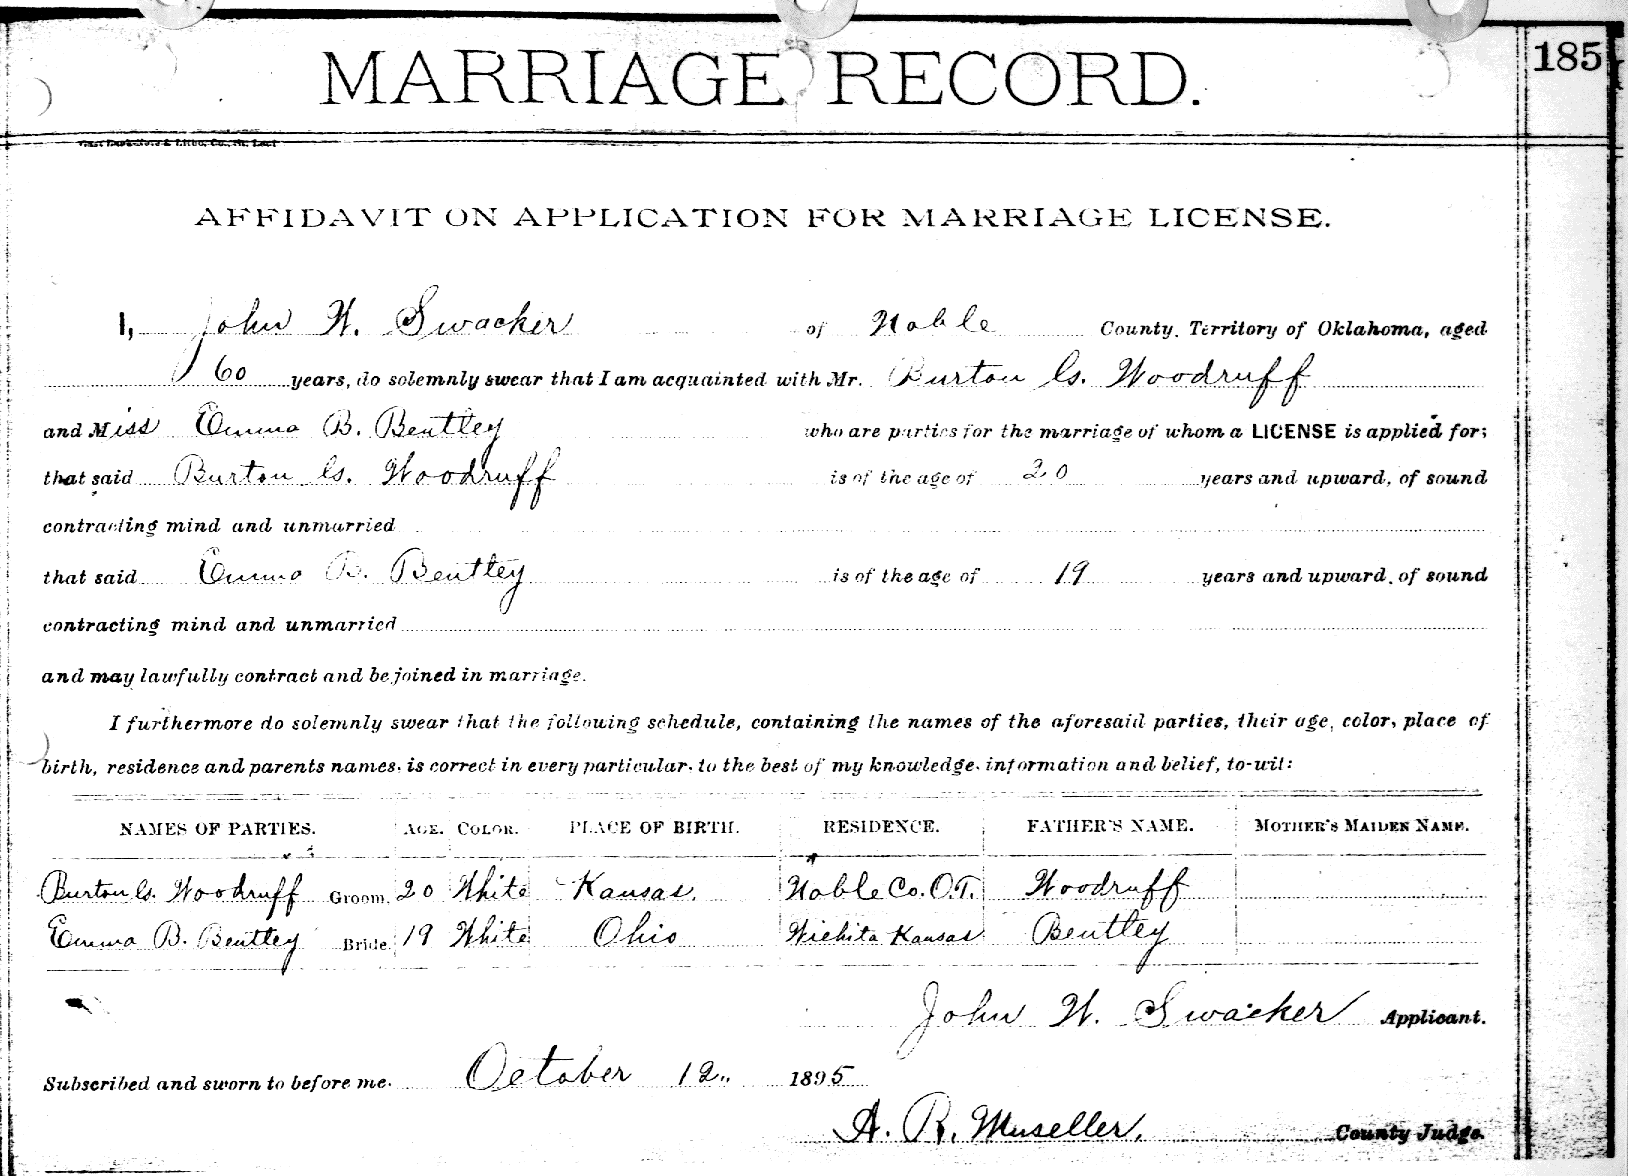 MARRIAGE RECORD.
185
AFFIDAVIT ON APPLICATION FOR MARRIAGE LICENSE.
I, John W. Swacker of Noble County, Territory of Oklahoma, aged
60 years, do solemnly swear that I am acquainted with Mr. Burton G. Woodruff
and Miss Emma B. Bentley who are parties for the marriage of whom a LICENSE is applied for;
that said Burton G. Woodruff is of the age of 20 years and upward, of sound
contracting mind and unmarried
that said Emma B. Bentley is of the age of 19 years and upward, of sound
contracting mind and unmarried
and may lawfully contract and be joined in marriage.
I furthermore do solemnly swear that the following schedule, containing the names of the aforesaid parties, their age, color, place of
birth, residence and parents names, is correct in every particular, to the best of my knowledge, information and belief, to-wit:
NAMES OF PARTIES. AGE. COLOR. PLACE OF BIRTH. RESIDENCE. FATHER'S NAME. MOTHER'S MAIDEN NAME.
Burton G. Woodruff Groom. 20 White Kansas. Noble Co. O.T. Woodruff
Emma B. Bentley Bride 19 White Ohio Wichita Kansas Bentley
John W. Swacker Applicant.
Subscribed and sworn to before me. October 12" 1895
A. R. Museller, County Judge.